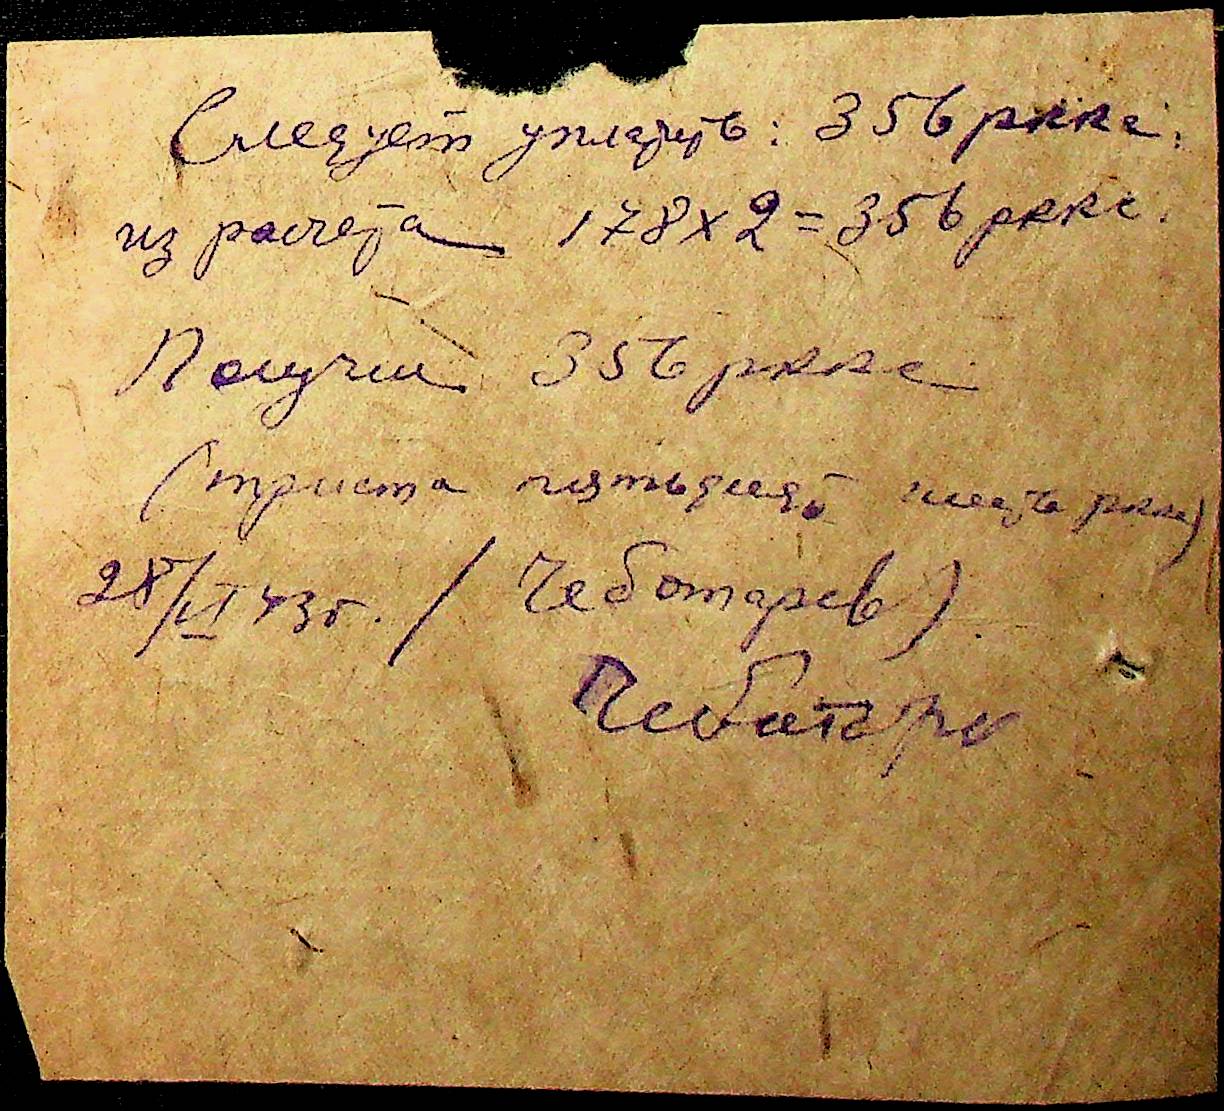 Следует уплатить: 356 рккс.
из расчета 178 х 2 = 356 рккс.
Получил 356 рккс.
(триста пятьдесят шесть рккс)
28/VI 43 г. (Чеботарев).
Чеботарев